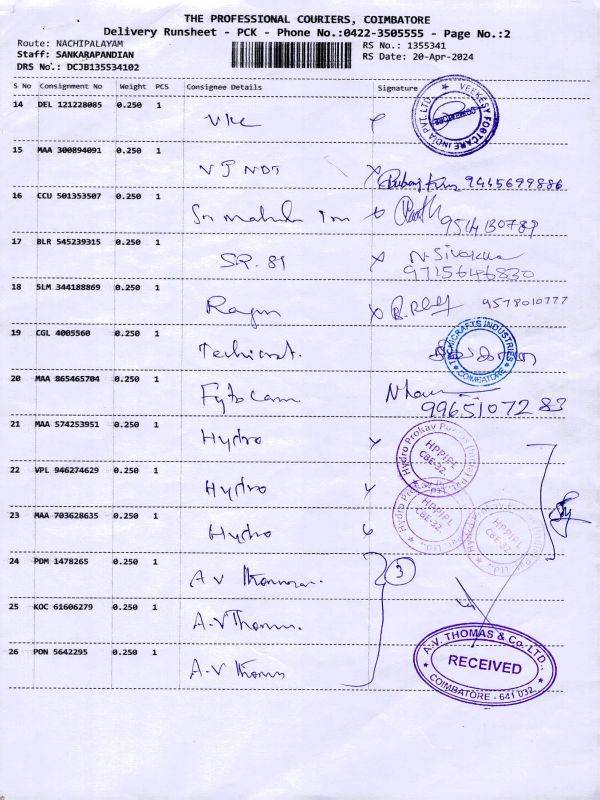 THE PROFESSIONAL COURIERS, COIMBATORE
Delivery Runsheet - PCK - Phone No.:0422-3505555 - Page No.:2
Route: NACHIPALAYAM
RS No.: 1355341
Staff: SANKARAPANDIAN
RS Date: 20-Apr-2024
DRS No.: DCJB135534102
S No Consignment No Weight PCS Consignee Details Signature
14 DEL 121228085 0.250 1
VEEKESY FOOTCARE INDIA PVT.LTD.
COIMBATORE
15 MAA 300894091 0.250 1
9445699886
16 CCU 501353507 0.250 1
17 BLR 545239315 0.250 1 SR. 81
9715646830
18 SLM 344188869 0.250 1 9578010777
19 CGL 4005560 0.250 1
COIMBATORE
20 MAA 865465704 0.250 1
9965107283
21 MAA 574253951 0.250 1 Hydro
HPPIPL
CBE-32.
22 VPL 946274629 0.250 1 Hydro
HPPIPL
CBE-32.
23 MAA 703628635 0.250 1 Hydro
HPPIPL
CBE-32.
24 PDM 1478265 0.250 1 A.V Thomas. 3
25 KOC 61606279 0.250 1 A.V Thomas.
26 PON 5642295 0.250 1 A.V Thomas
A.V. THOMAS & Co. LTD.,
RECEIVED
COIMBATORE - 641 032.